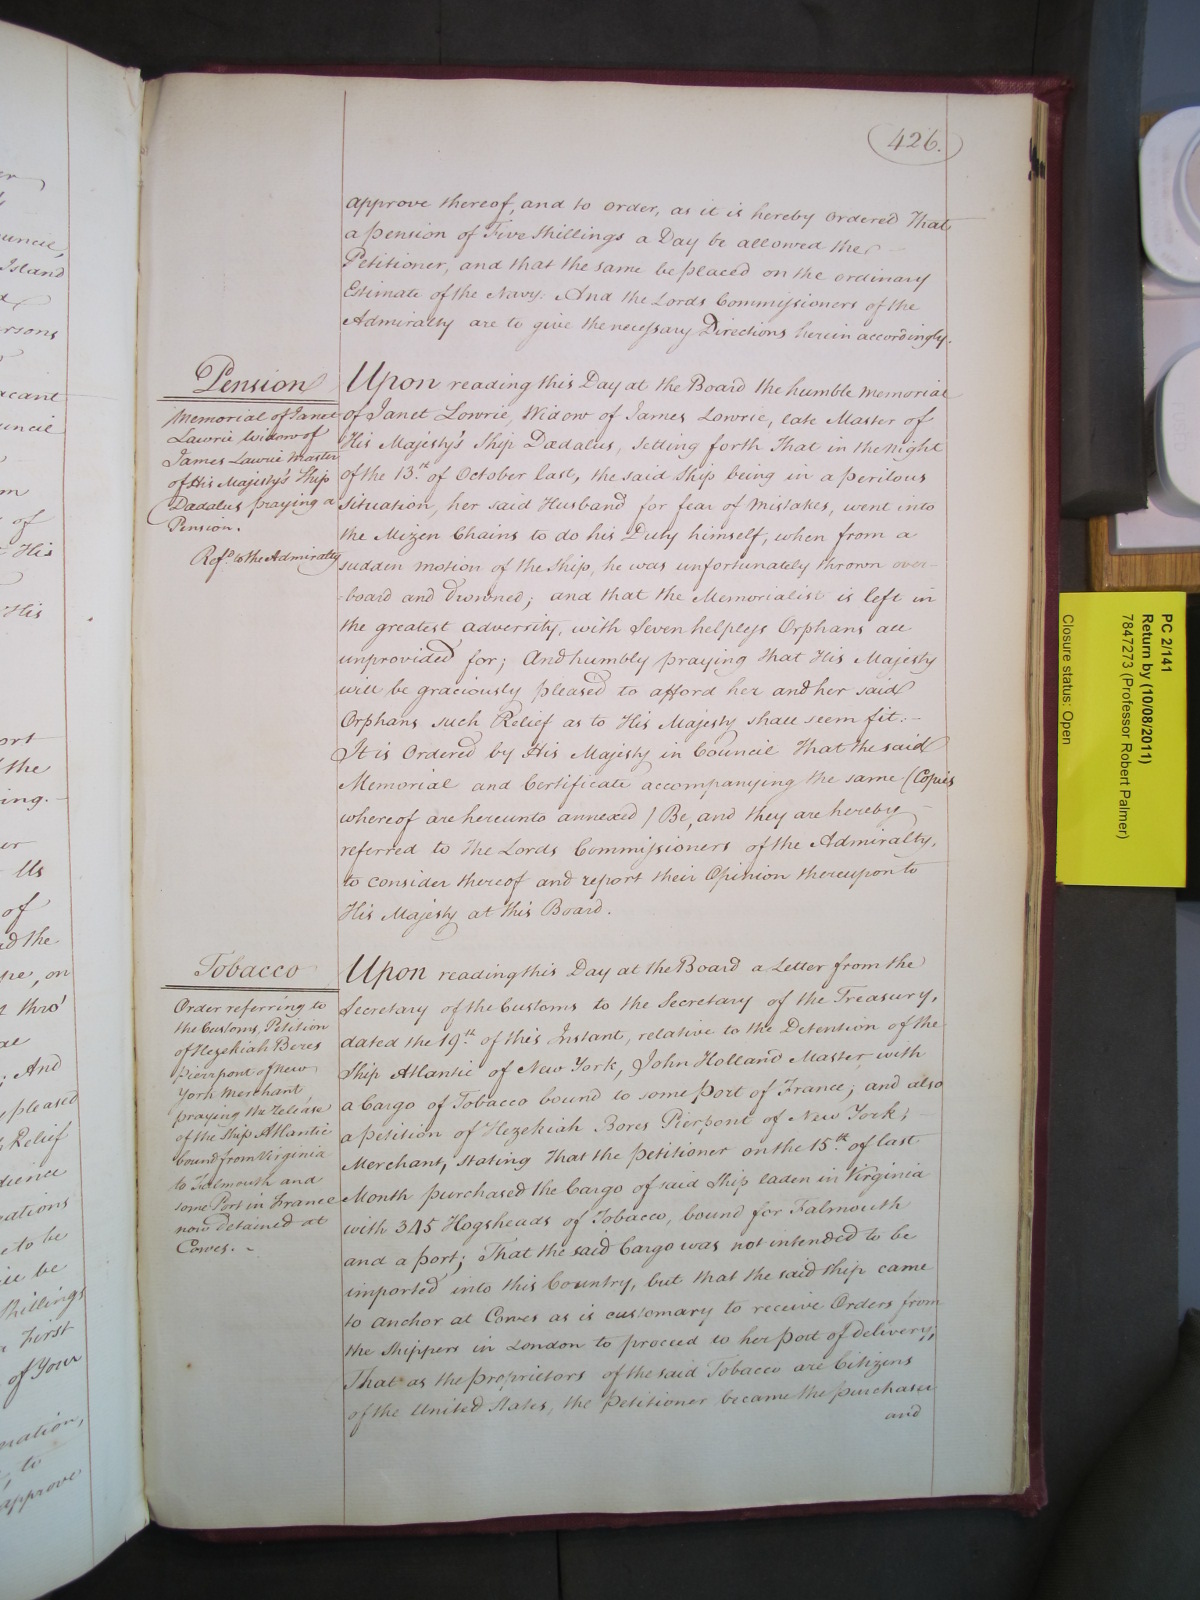 426.
approve thereof, and to order, as it is hereby Ordered That
a Pension of Five Shillings a Day be allowed the
Petitioner, and that the same be placed on the ordinary
Estimate of the Navy. And the Lords Commissioners of the
Admiralty are to give the necessary Directions herein accordingly.
Pension
Memorial of Janet
Lawrie Widow of
James Lawrie Master
of His Majesty's Ship
Dadalus praying a
Pension.
Refd. to the Admiralty
Upon reading this Day at the Board the humble Memorial
of Janet Lowrie, Widow of James Lowrie, late Master of
His Majesty's Ship Dadalus, Setting forth That in the Night
of the 13th. of October last, the said Ship being in a perilous
situation, her said Husband for fear of Mistakes, went into
the Mizen Chains to do his Duty himself, when from a
sudden motion of the Ship, he was unfortunately thrown over-
-board and Drowned; and that the Memorialist is left in
the greatest adversity, with Seven helpless Orphans all
unprovided for; And humbly praying that His Majesty
will be graciously pleased to afford her and her said
Orphans such Relief as to His Majesty shall seem fit:-
It is Ordered by His Majesty in Council That the said
Memorial and Certificate accompanying the same (Copies
whereof are hereunto annexed) Be, and they are hereby
referred to the Lords Commissioners of the Admiralty,
to consider thereof and report their Opinion thereupon to
His Majesty at this Board.
Tobacco
Order referring to
the Customs, Petition
of Hezekiah Beres
Pierrpont of New
York Merchant
praying the release
of the Ship Atlantic
bound from Virginia
to Falmouth and
some Port in France
now detained at
Cowes.
Upon reading this Day at the Board a Letter from the
Secretary of the Customs to the Secretary of the Treasury,
dated the 19th. of this Instant, relative to the Detention of the
Ship Atlantic of New York, John Holland Master, with
a Cargo of Tobacco bound to some Port of France; and also
a petition of Hezekiah Bores Pierpont of New York,
Merchant, stating That the Petitioner on the 15th. of last
Month purchased the Cargo of said Ship laden in Virginia
with 345 Hogsheads of Tobacco, bound for Falmouth
and a port; That the said Cargo was not intended to be
imported into this Country, but that the said Ship came
to anchor at Cowes as is customary to receive Orders from
the Shippers in London to proceed to her port of delivery;
That as the proprietors of the said Tobacco are Citizens
of the United States, the Petitioner became the purchaser
and
PC 2/141
Return by (10/08/2011)
7847273 (Professor Robert Palmer)
Closure status: Open